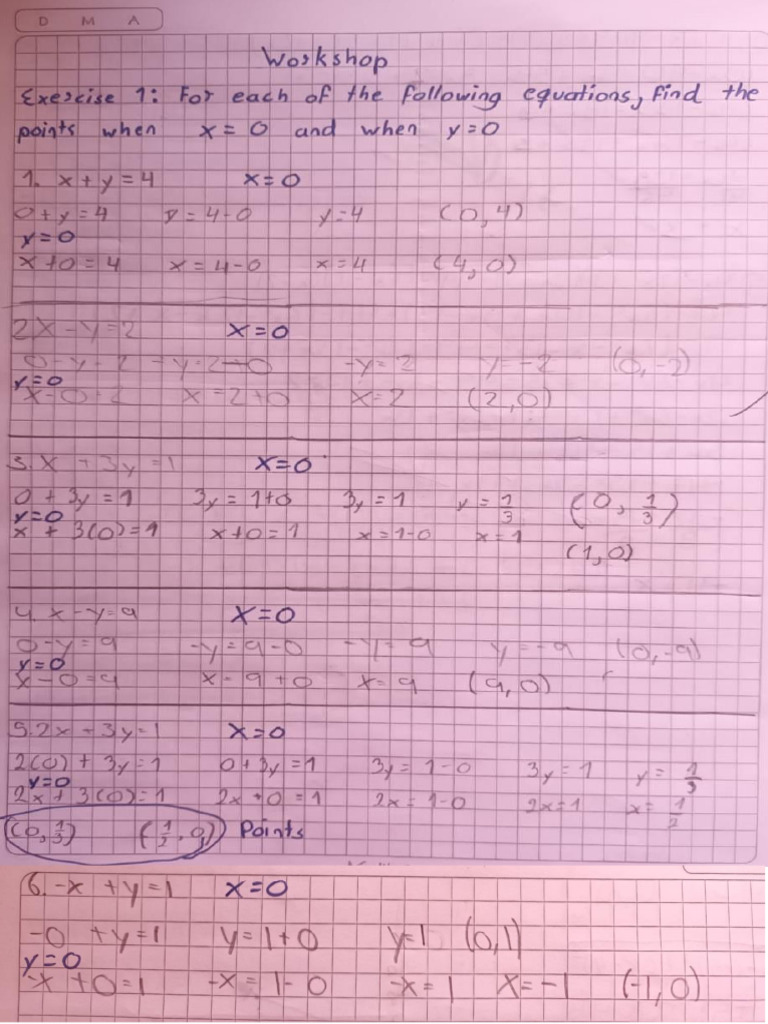 D M A
Workshop
Exercise 1: For each of the following equations, find the
points when x = 0 and when y = 0
1. x + y = 4 x = 0
0 + y = 4 y = 4 - 0 y = 4 (0, 4)
y = 0
x + 0 = 4 x = 4 - 0 x = 4 (4, 0)
2 x - y = 2 x = 0
0 - y = 2 - y = 2 - 0 - y = 2 y = -2 (0, -2)
y = 0
x - 0 = 2 x = 2 + 0 x = 2 (2, 0)
3. x + 3y = 1 x = 0
0 + 3y = 1 3y = 1 + 0 3y = 1 y = 1/3 (0, 1/3)
y = 0
x + 3(0) = 1 x + 0 = 1 x = 1 - 0 x = 1
(1, 0)
4. x - y = 9 x = 0
0 - y = 9 - y = 9 - 0 - y = 9 y = -9 (0, -9)
y = 0
x - 0 = 9 x = 9 + 0 x = 9 (9, 0)
5. 2x + 3y = 1 x = 0
2(0) + 3y = 1 0 + 3y = 1 3y = 1 - 0 3y = 1 y = 1/3
y = 0
2x + 3(0) = 1 2x + 0 = 1 2x = 1 - 0 2x = 1 x = 1/2
(0, 1/3) (1/2, 0) Points
6. -x + y = 1 x = 0
-0 + y = 1 y = 1 + 0 y = 1 (0, 1)
y = 0
-x + 0 = 1 -x = 1 - 0 -x = 1 x = -1 (-1, 0)